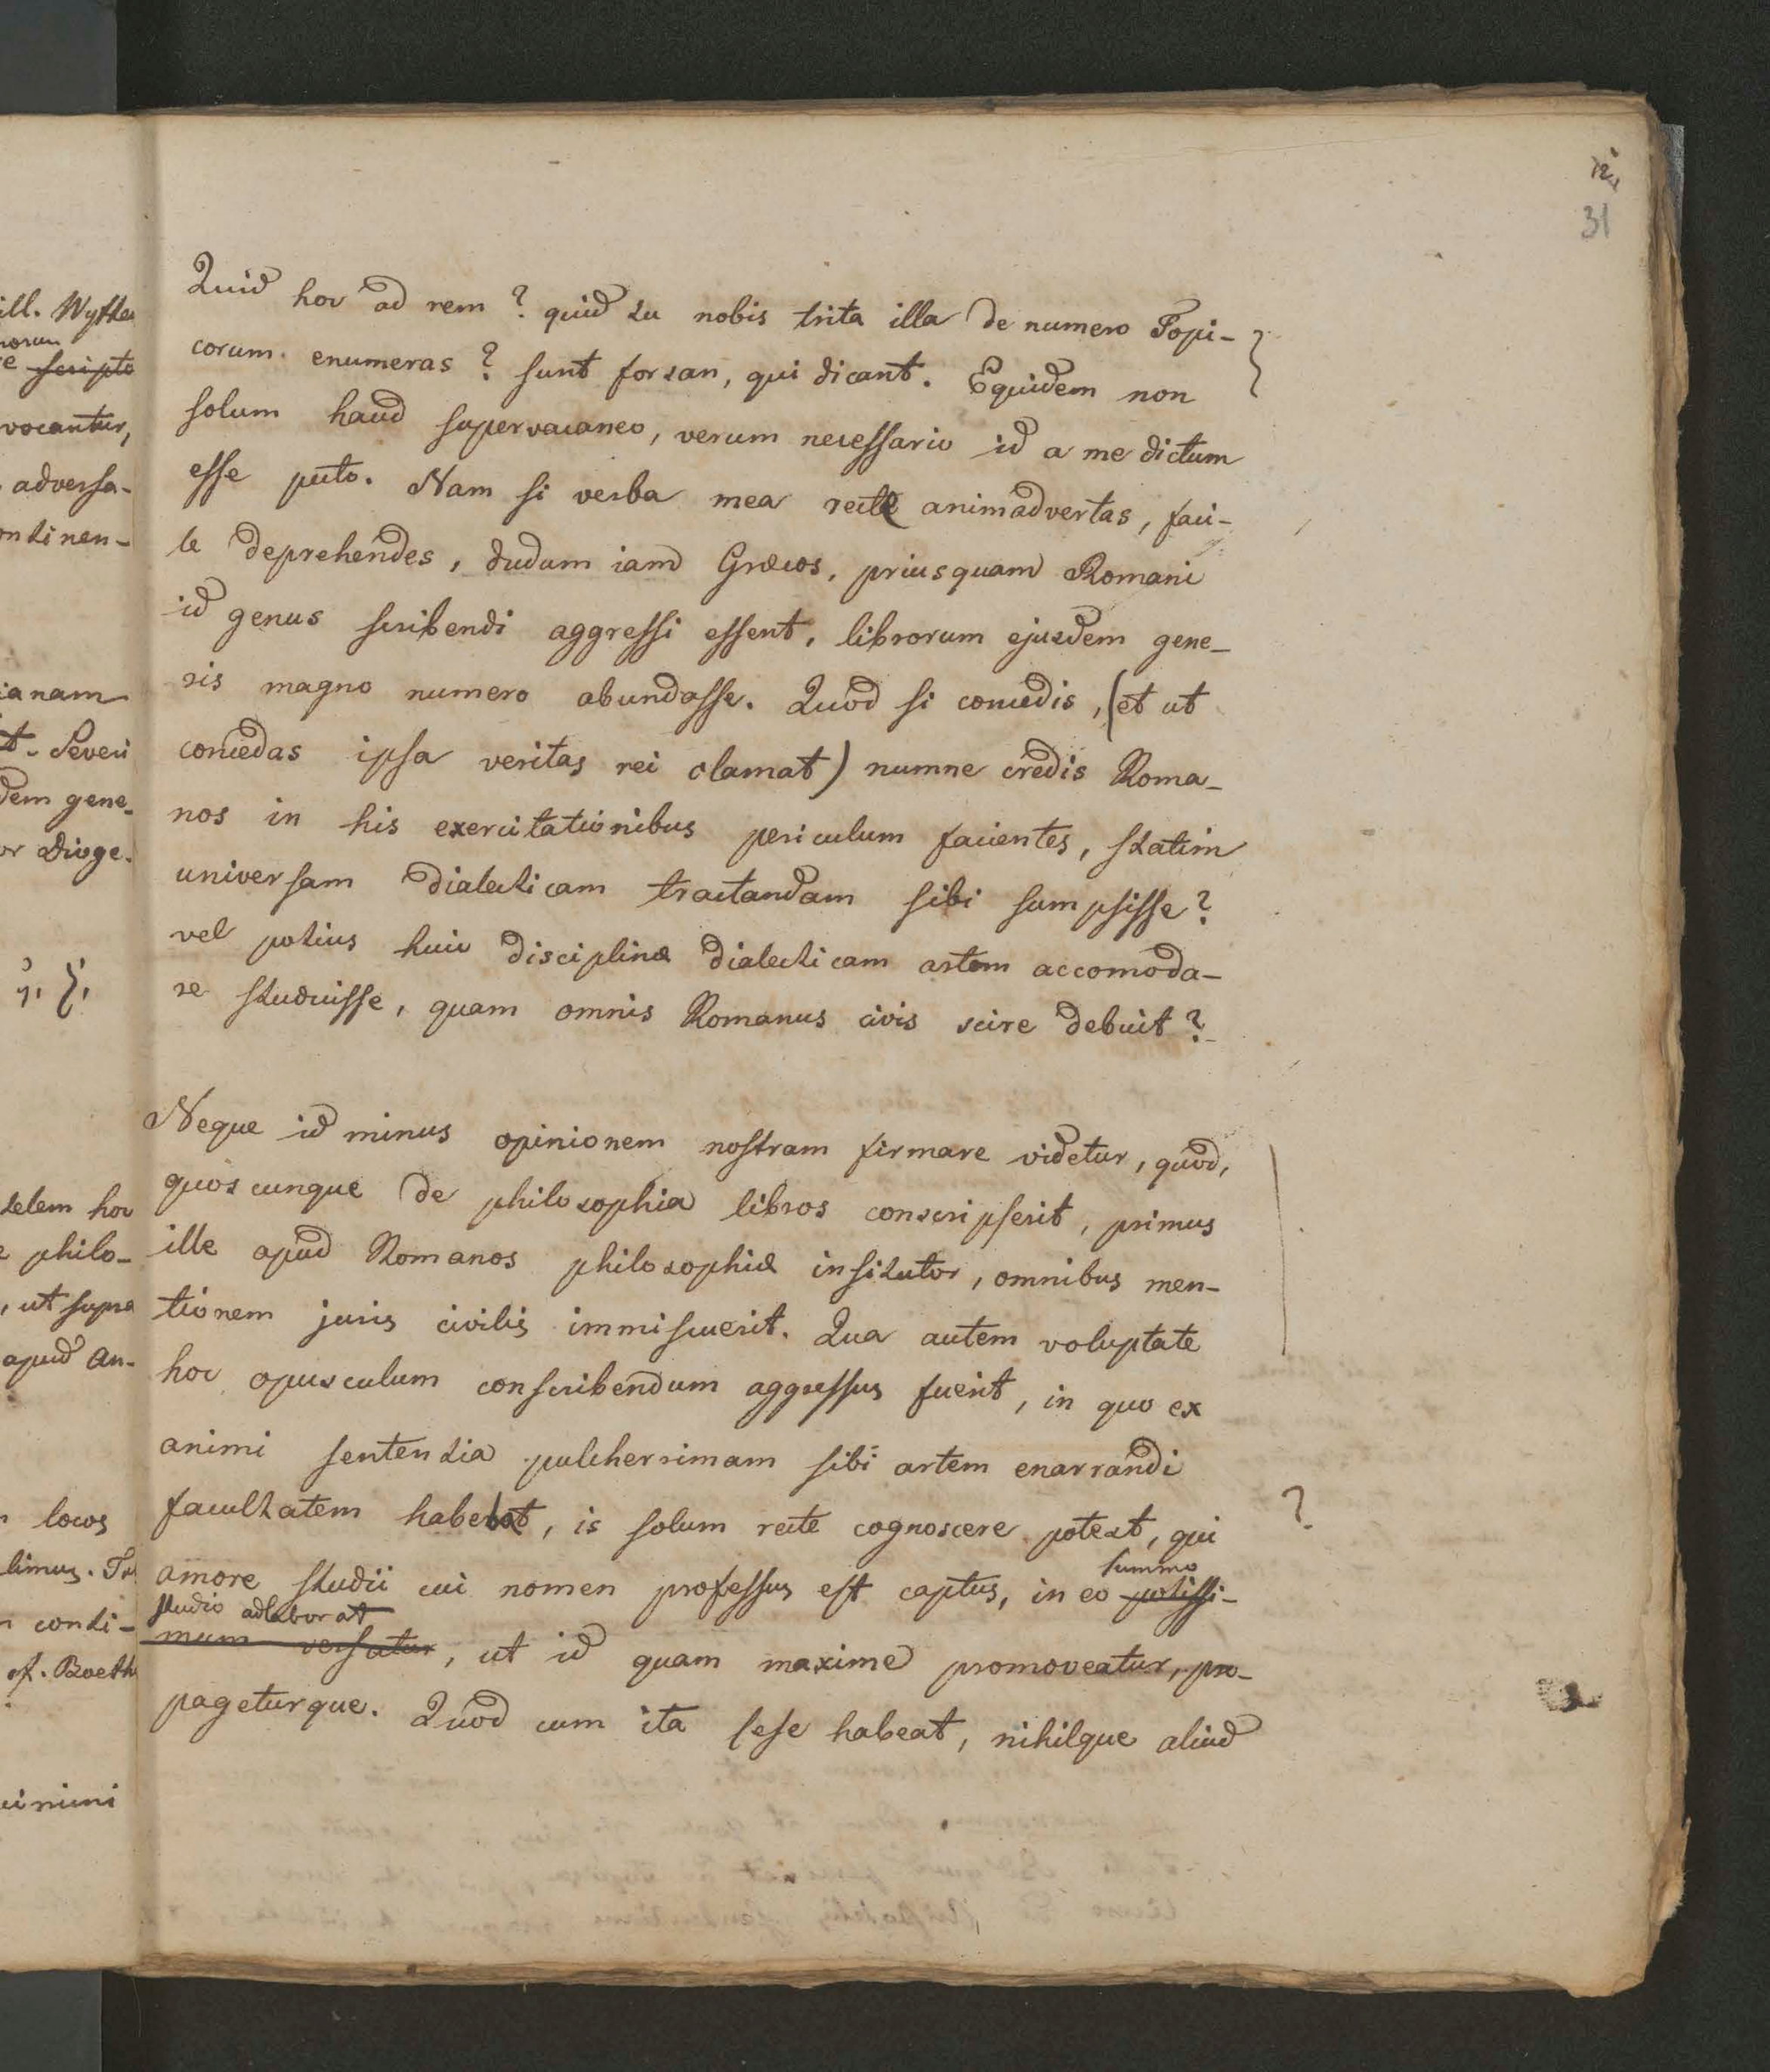 12.
31
Quid hoc ad rem? quid tu nobis trita illa de numero Topi-
corum enumeras? sunt forsan, qui dicant. Equidem non
solum haud supervacaneo, verum necessario id a me dictum
esse puto. Nam si verba mea recte animadvertas, faci-
le deprehendes, dudum iam Græcos, priusquam Romani
id genus scribendi aggressi essent, librorum ejusdem gene-
ris magno numero abundasse. Quod si concedis, (et ut
concedas ipsa veritas rei clamat) numne credis Roma-
nos in his exercitationibus periculum facientes, statim
universam dialecticam tractandam sibi sumpsisse?
vel potius huic disciplinæ dialecticam artem accomoda-
re studuisse, quam omnis Romanus civis scire debuit?
Neque id minus opinionem nostram firmare videtur, quod,
quoscunque de philosophia libros conscripserit, primus
ille apud Romanos philosophiæ insitutor, omnibus men-
tionem juris civilis immiscuerit. Qua autem voluptate
hoc opusculum conscribendum aggressus fuerit, in quo ex
animi sententia pulcherrimam sibi artem enarrandi
facultatem habebat, is solum recte cognoscere potest, qui
?
amore studii cui nomen professus est captus, in eo potissi-
summo
studio adlaborat
mum versatur, ut id quam maxime promoveatur, pro-
pageturque. Quod cum ita sese habeat, nihilque aliud
ill. Wytte
scripto
vocantur,
adversa-
ontinen-
ianam
t. Severi
dem gene-
or Dioge.
telem hoc
philo-
, ut supra
apud An-
locos
limus.
conti-
cf. Boeth